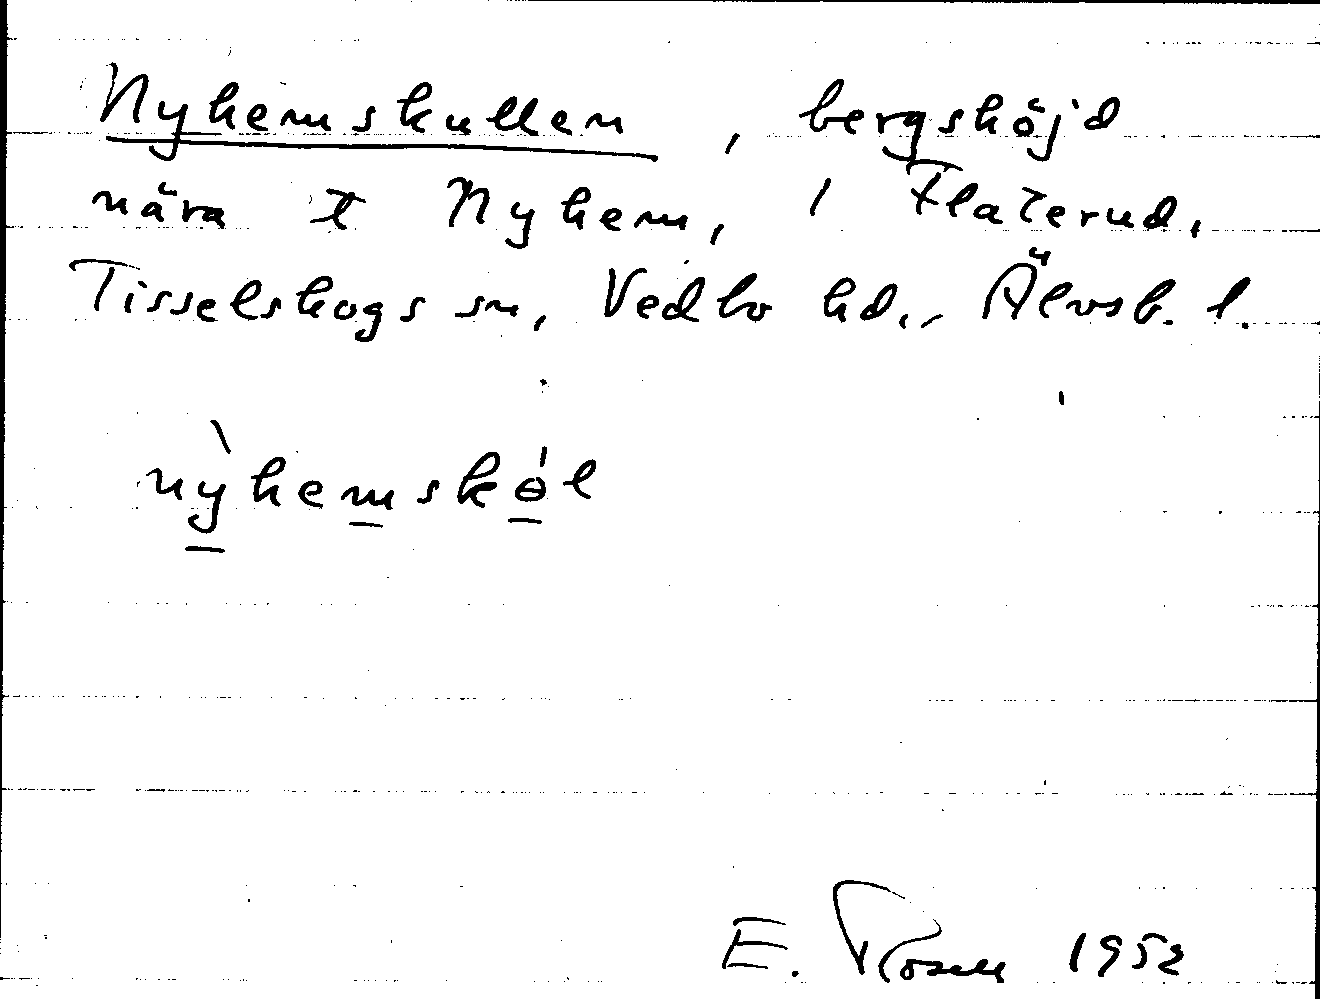 Nyhemskullen, bergshöjd
nära t Nyhem, 1 Flaterud,
Tisselskogs sn, Vedbo hd., Älvsb. l.
nỳhemskɵ́l
E. Rosell 1952